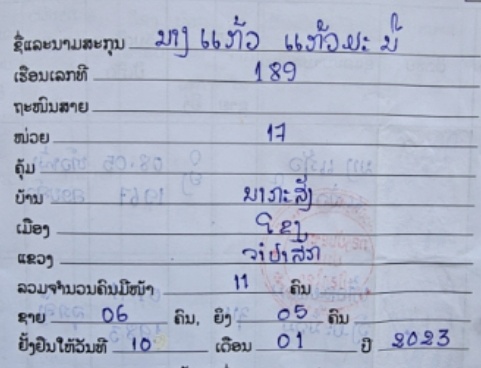 ຊື່ແລະນາມສະກຸນ ນາງ ແກ້ວ ແກ້ວມະນີ
ເຮືອນເລກທີ 189
ຖະໜົນສາຍ
ໜ່ວຍ 17
ຄຸ້ມ
ບ້ານ ນາກະສັງ
ເມືອງ ໂຂງ
ແຂວງ ຈຳປາສັກ
ລວມຈຳນວນຄົນມີໜ້າ 11 ຄົນ
ຊາຍ 06 ຄົນ, ຍິງ 05 ຄົນ
ຢັ້ງຢືນໃຫ້ວັນທີ 10 ເດືອນ 01 ປີ 2023